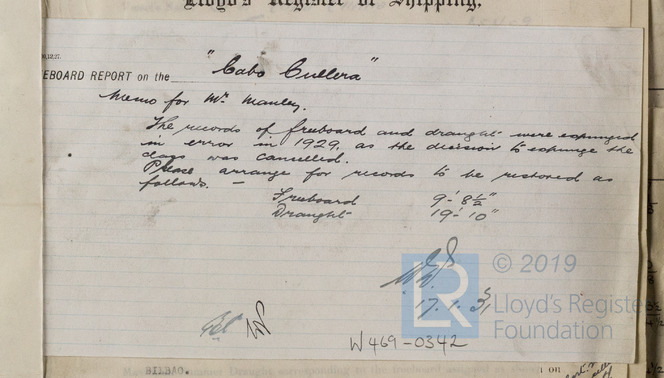 Lloyd's Register of Shipping.
EEBOARD REPORT on the "Cabo Cullera"
Memo for Mr. Manley.
The records of freeboard and draught were expunged
in error in 1929, as the decision to expunge the
days was cancelled.
Please arrange for records to be restored as
follows. —
Freeboard 9'- 8½"
Draught 19'- 10"
17.1.31
© 2019
LR
Lloyd's Registe
Foundation
W469-0342
BILBAO.